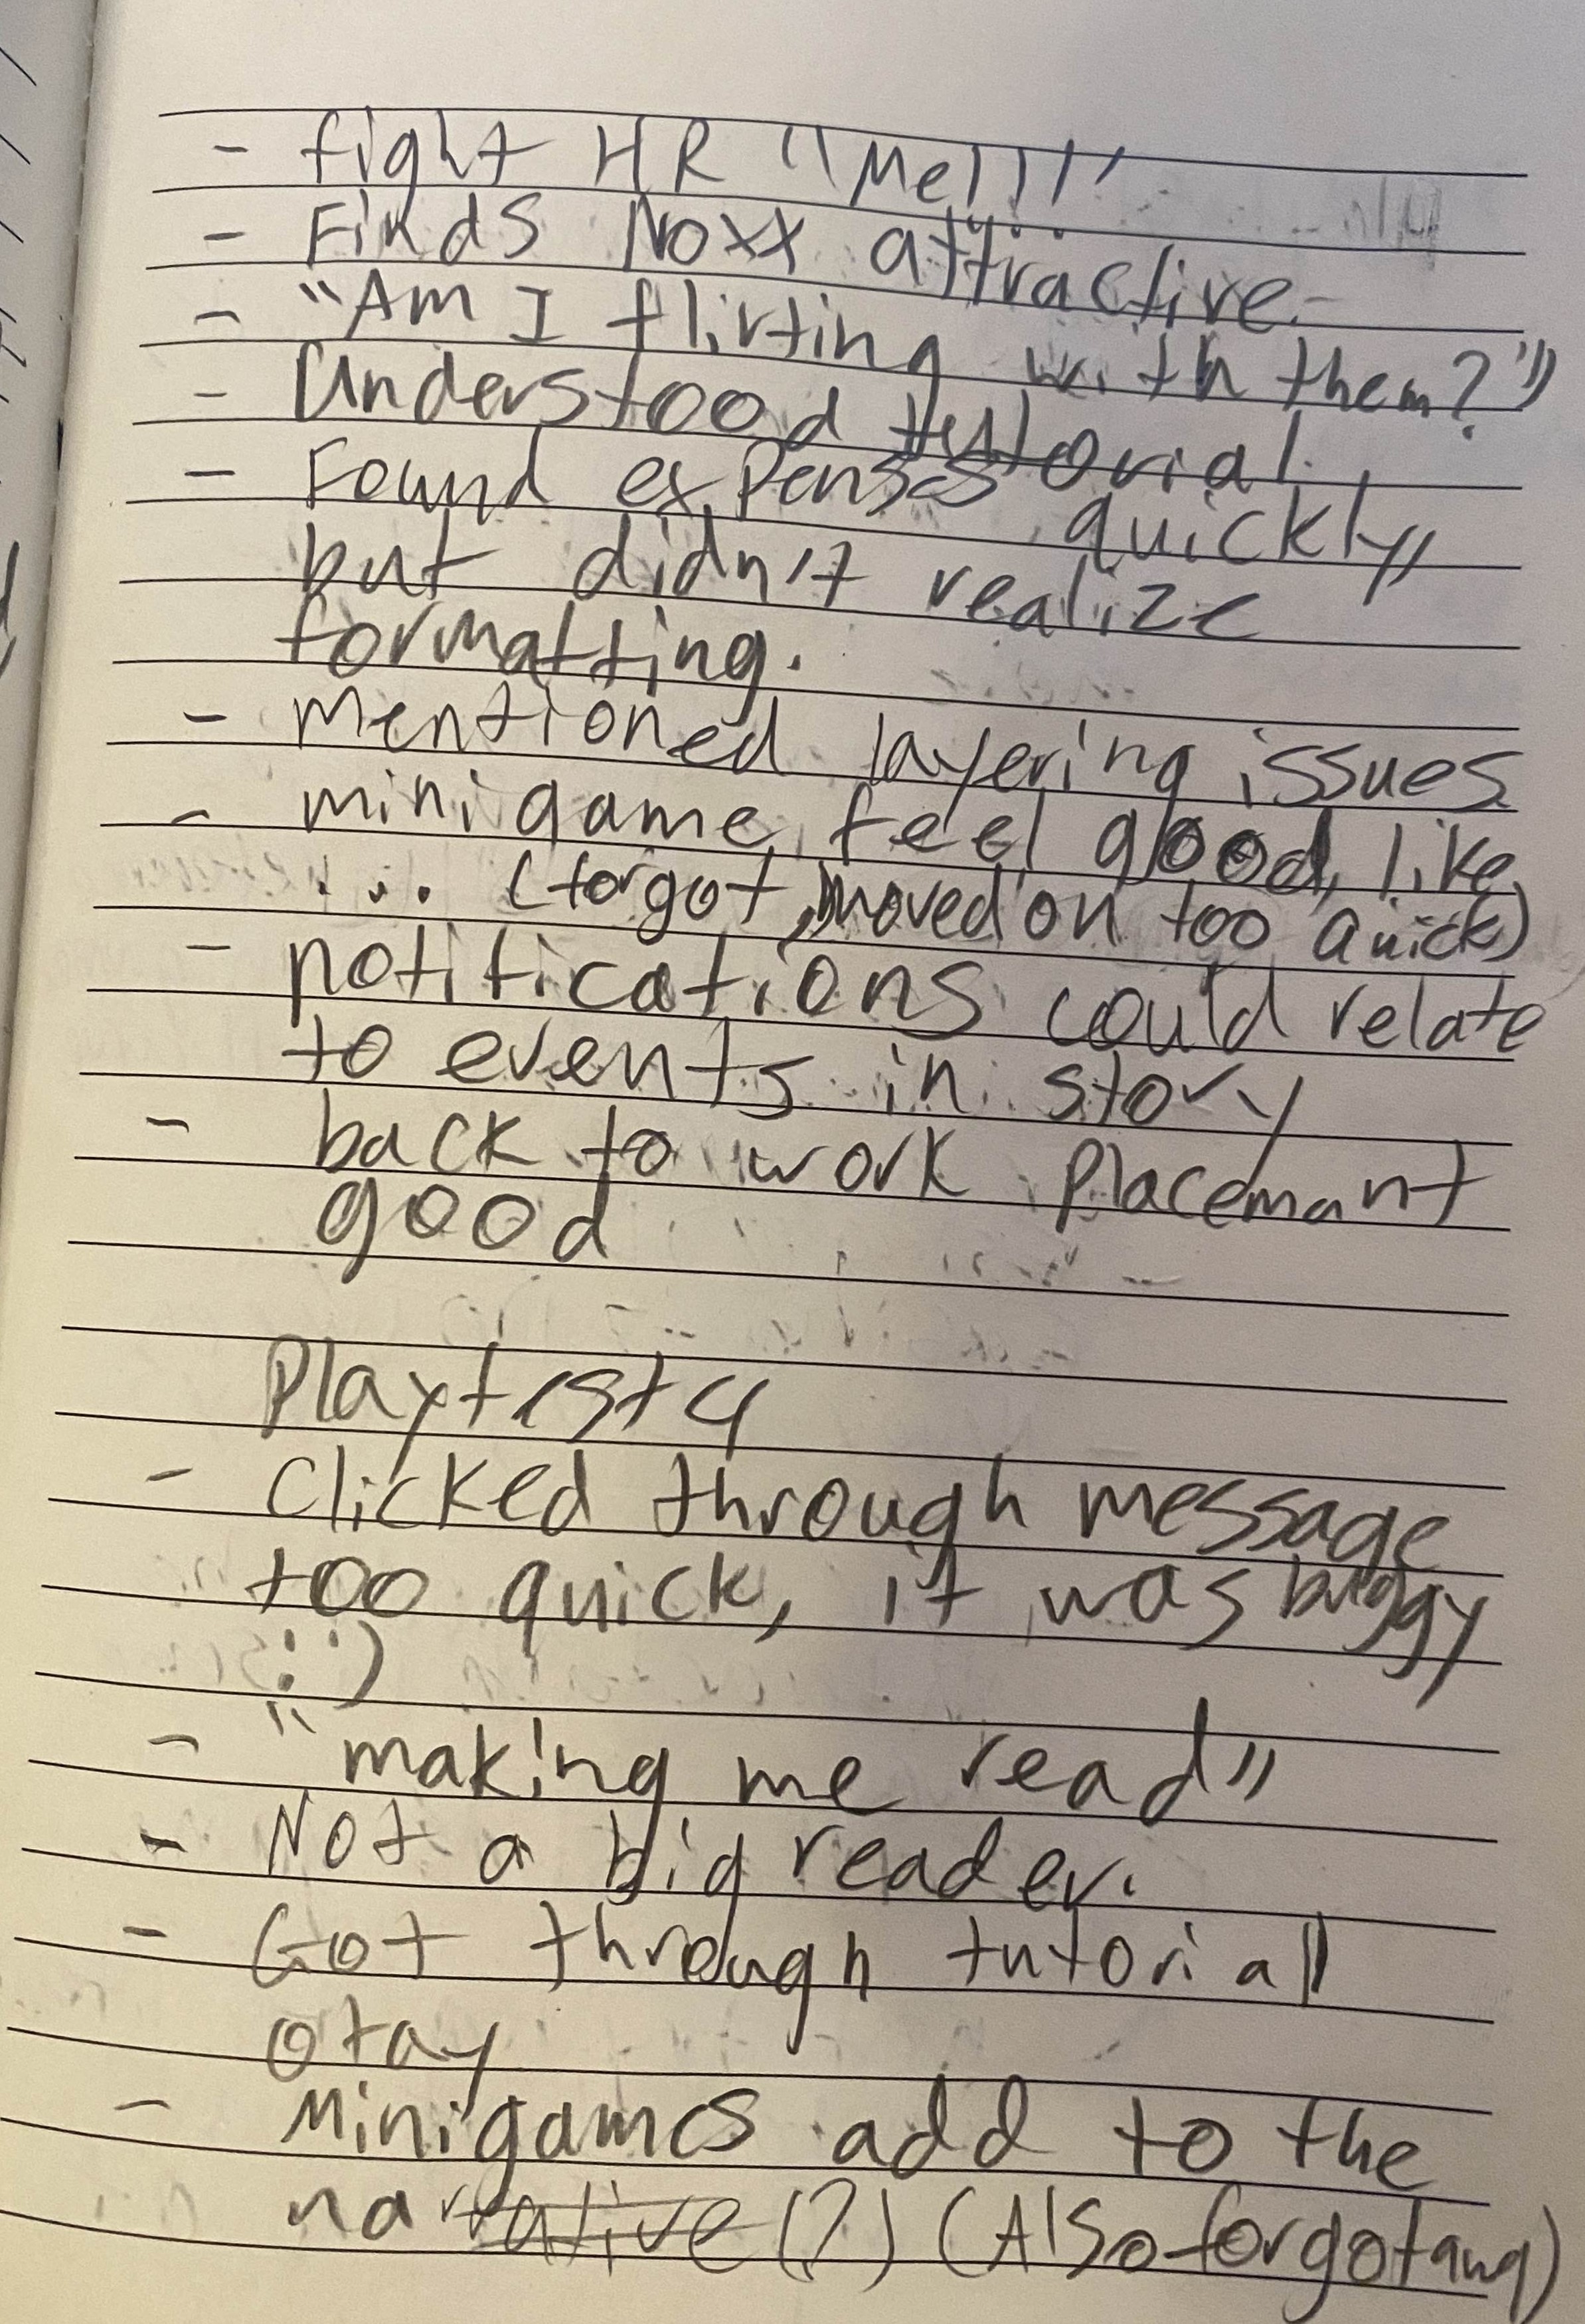 - fight HR "Me!!!"
- Finds Noxx attractive.
- "Am I flirting with them?"
- Understood tutorial
- Found expenses quickly,
but didn't realize
formatting.
- mentioned layering issues
- minigame feel good, like
... (forgot, moved on too quick)
- notifications could relate
to events in story
- back to work placemant
good
Playtest 4
- Clicked through message
too quick, it was buggy
:')
- "making me read"
- Not a big reader.
- Got through tutorial
okay
- Minigames add to the
narrative (?) (Also forgot